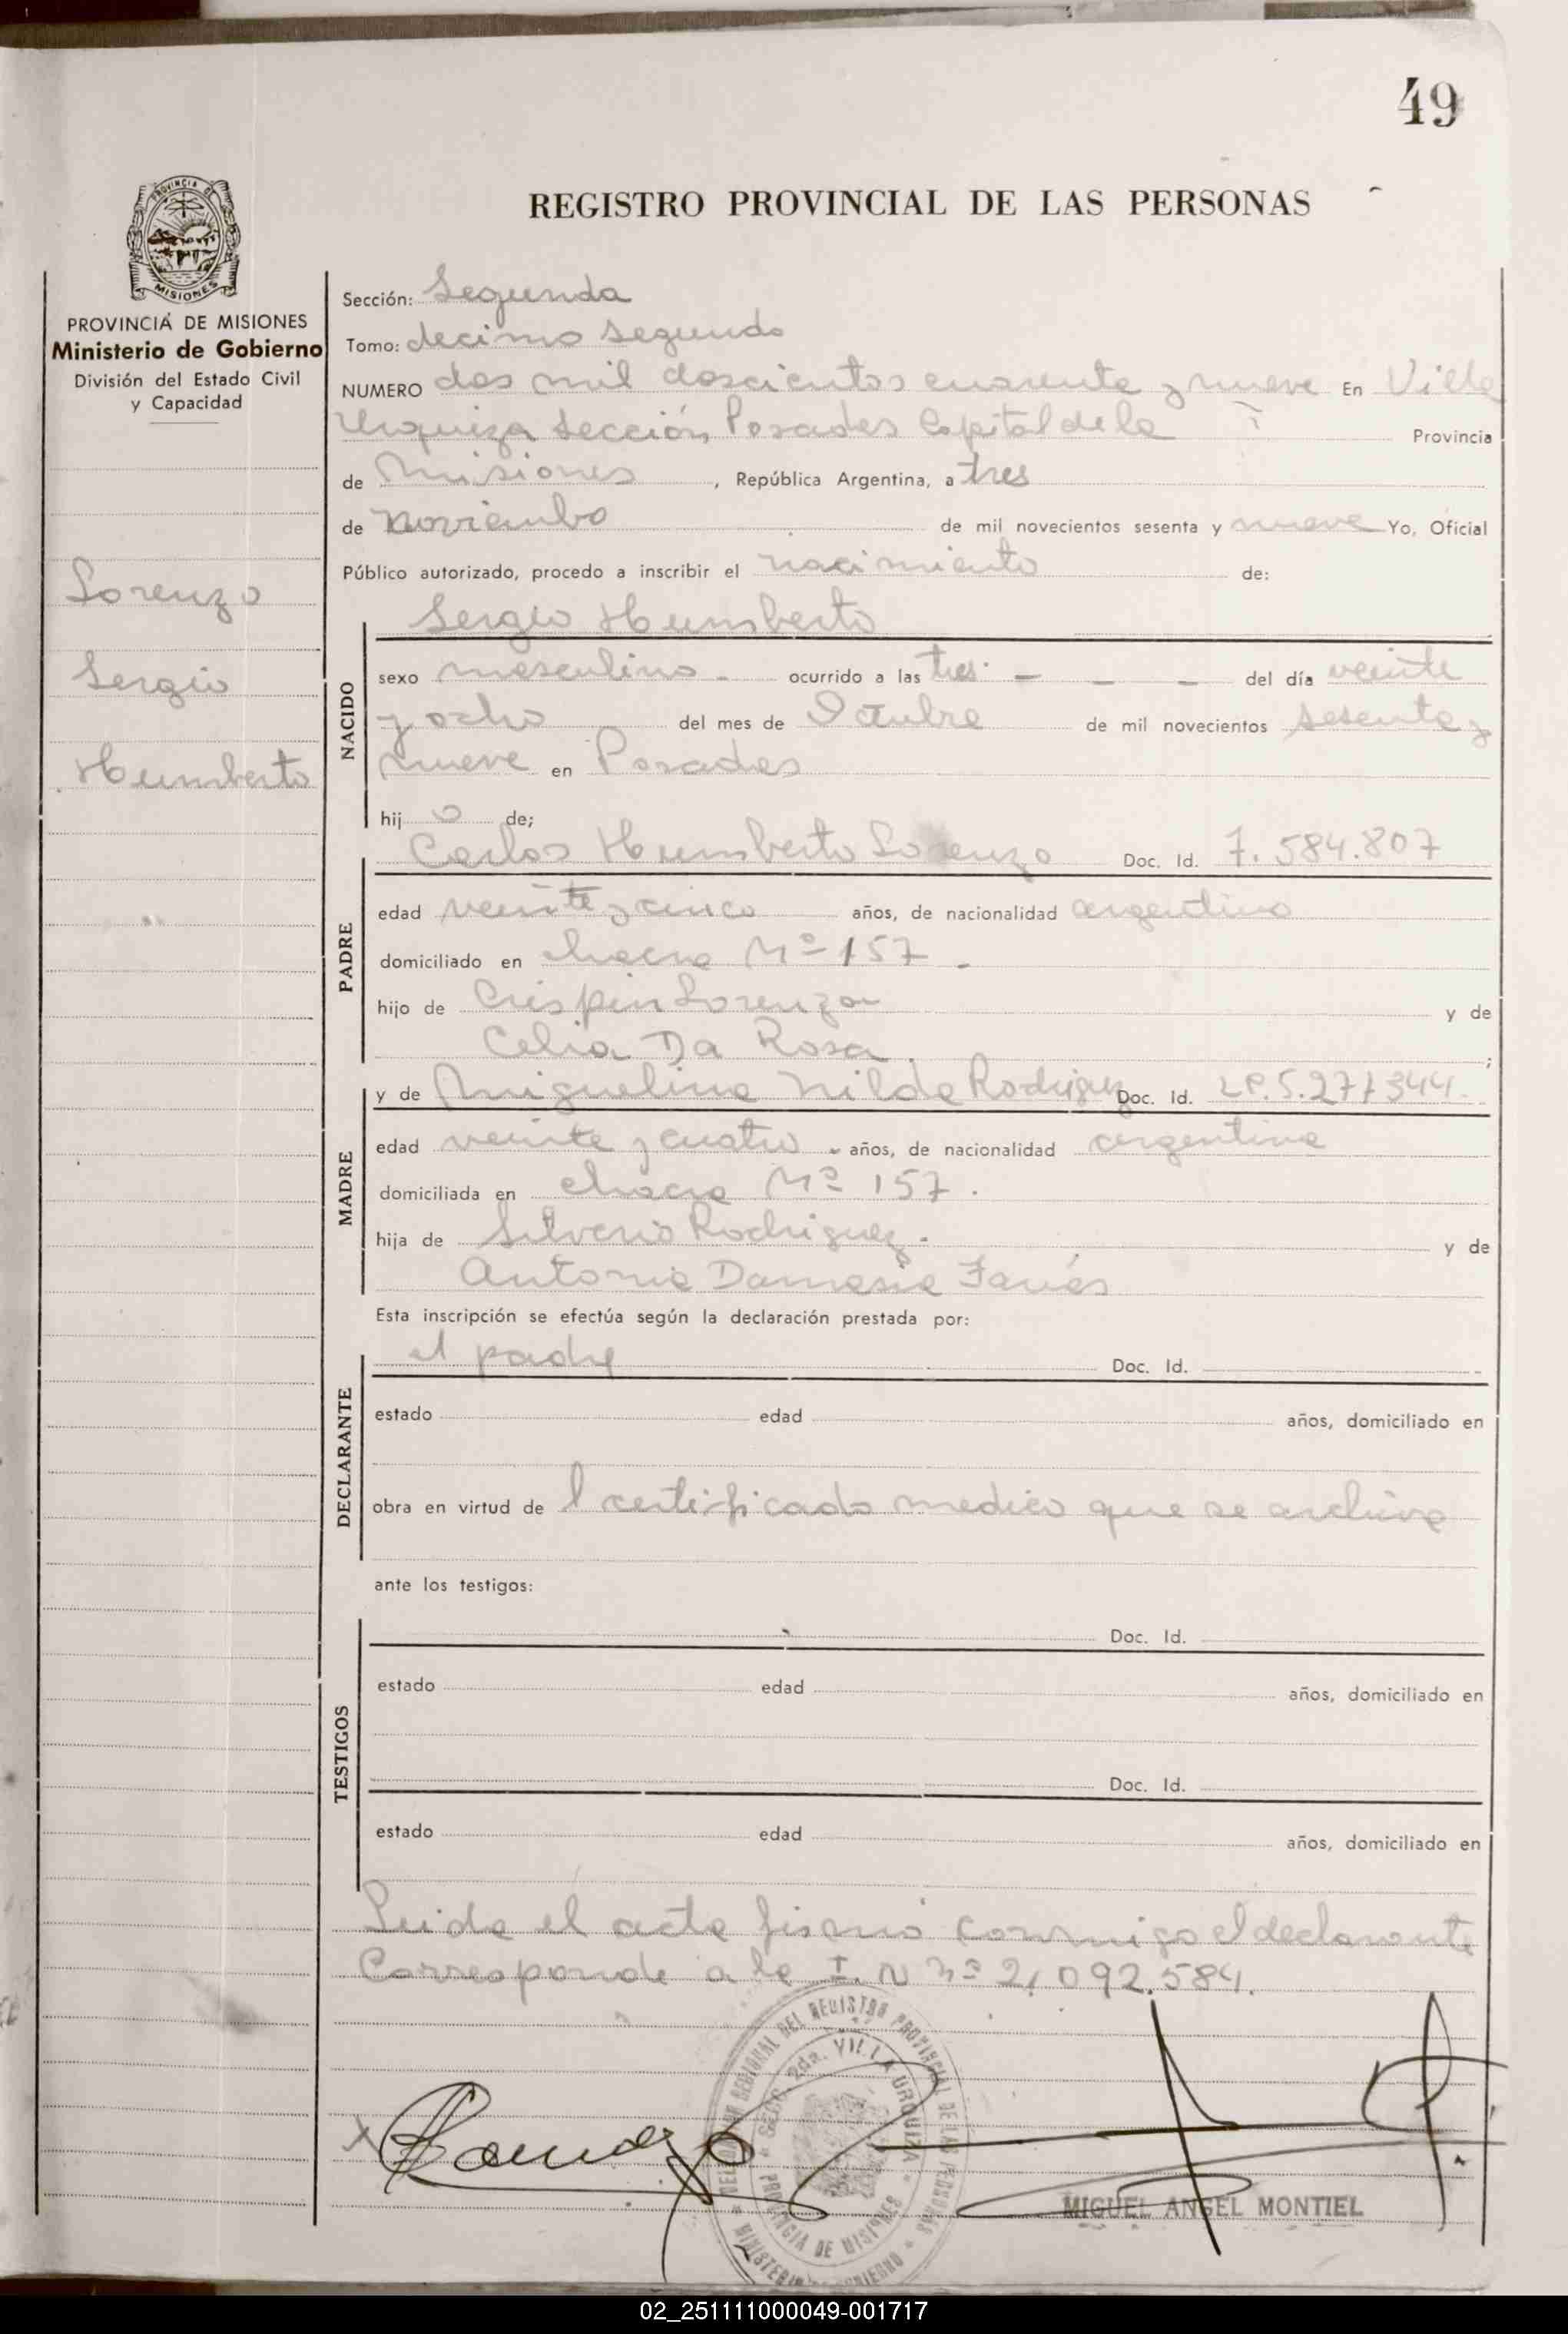 49
REGISTRO PROVINCIAL DE LAS PERSONAS
PROVINCIA DE MISIONES
PROVINCIA DE MISIONES
Ministerio de Gobierno
División del Estado Civil
y Capacidad
Lorenzo
Sergio
Humberto
Sección: Segunda
Tomo: decimo segundo
NUMERO dos mil doscientos cuarenta y nueve En Villa
Urquiza Sección Posadas Capital de la Provincia
de Misiones, República Argentina, a tres
de noviembre de mil novecientos sesenta y nueve Yo, Oficial
Público autorizado, procedo a inscribir el nacimiento de:
Sergio Humberto
NACIDO
sexo masculino - ocurrido a las tres - - - del día veinte
y ocho del mes de Octubre de mil novecientos sesenta y
nueve en Posadas
hij o de;
Carlos Humberto Lorenzo Doc. Id. 7.584.807
PADRE
edad veinte y cinco años, de nacionalidad argentino
domiciliado en chacra Nº 157 -
hijo de Crispin Lorenzo y de
Celia Da Rosa. ;
y de Miguelina Nilda Rodriguez Doc. Id. LC.5.277344.
MADRE
edad veinte y cuatro - años, de nacionalidad argentina
domiciliada en chacra Nº 157.
hija de Silverio Rodriguez - y de
Antonia Damasia
Esta inscripción se efectúa según la declaración prestada por:
el padre Doc. Id.
DECLARANTE
estado edad años, domiciliado en
obra en virtud de l certificado medico que se archiva
ante los testigos:
Doc. Id.
TESTIGOS
estado edad años, domiciliado en
Doc. Id.
estado edad años, domiciliado en
Leida el acta firmó conmigo el declarante
Corresponde a la I. N nº 21.092.584.
DELEGACION REGIONAL DEL REGISTRO PROVINCIAL DE LAS PERSONAS
SECC. 2da. VILLA URQUIZA
PROVINCIA DE MISIONES
MINISTERIO DE GOBIERNO
MIGUEL ANGEL MONTIEL
02_251111000049-001717